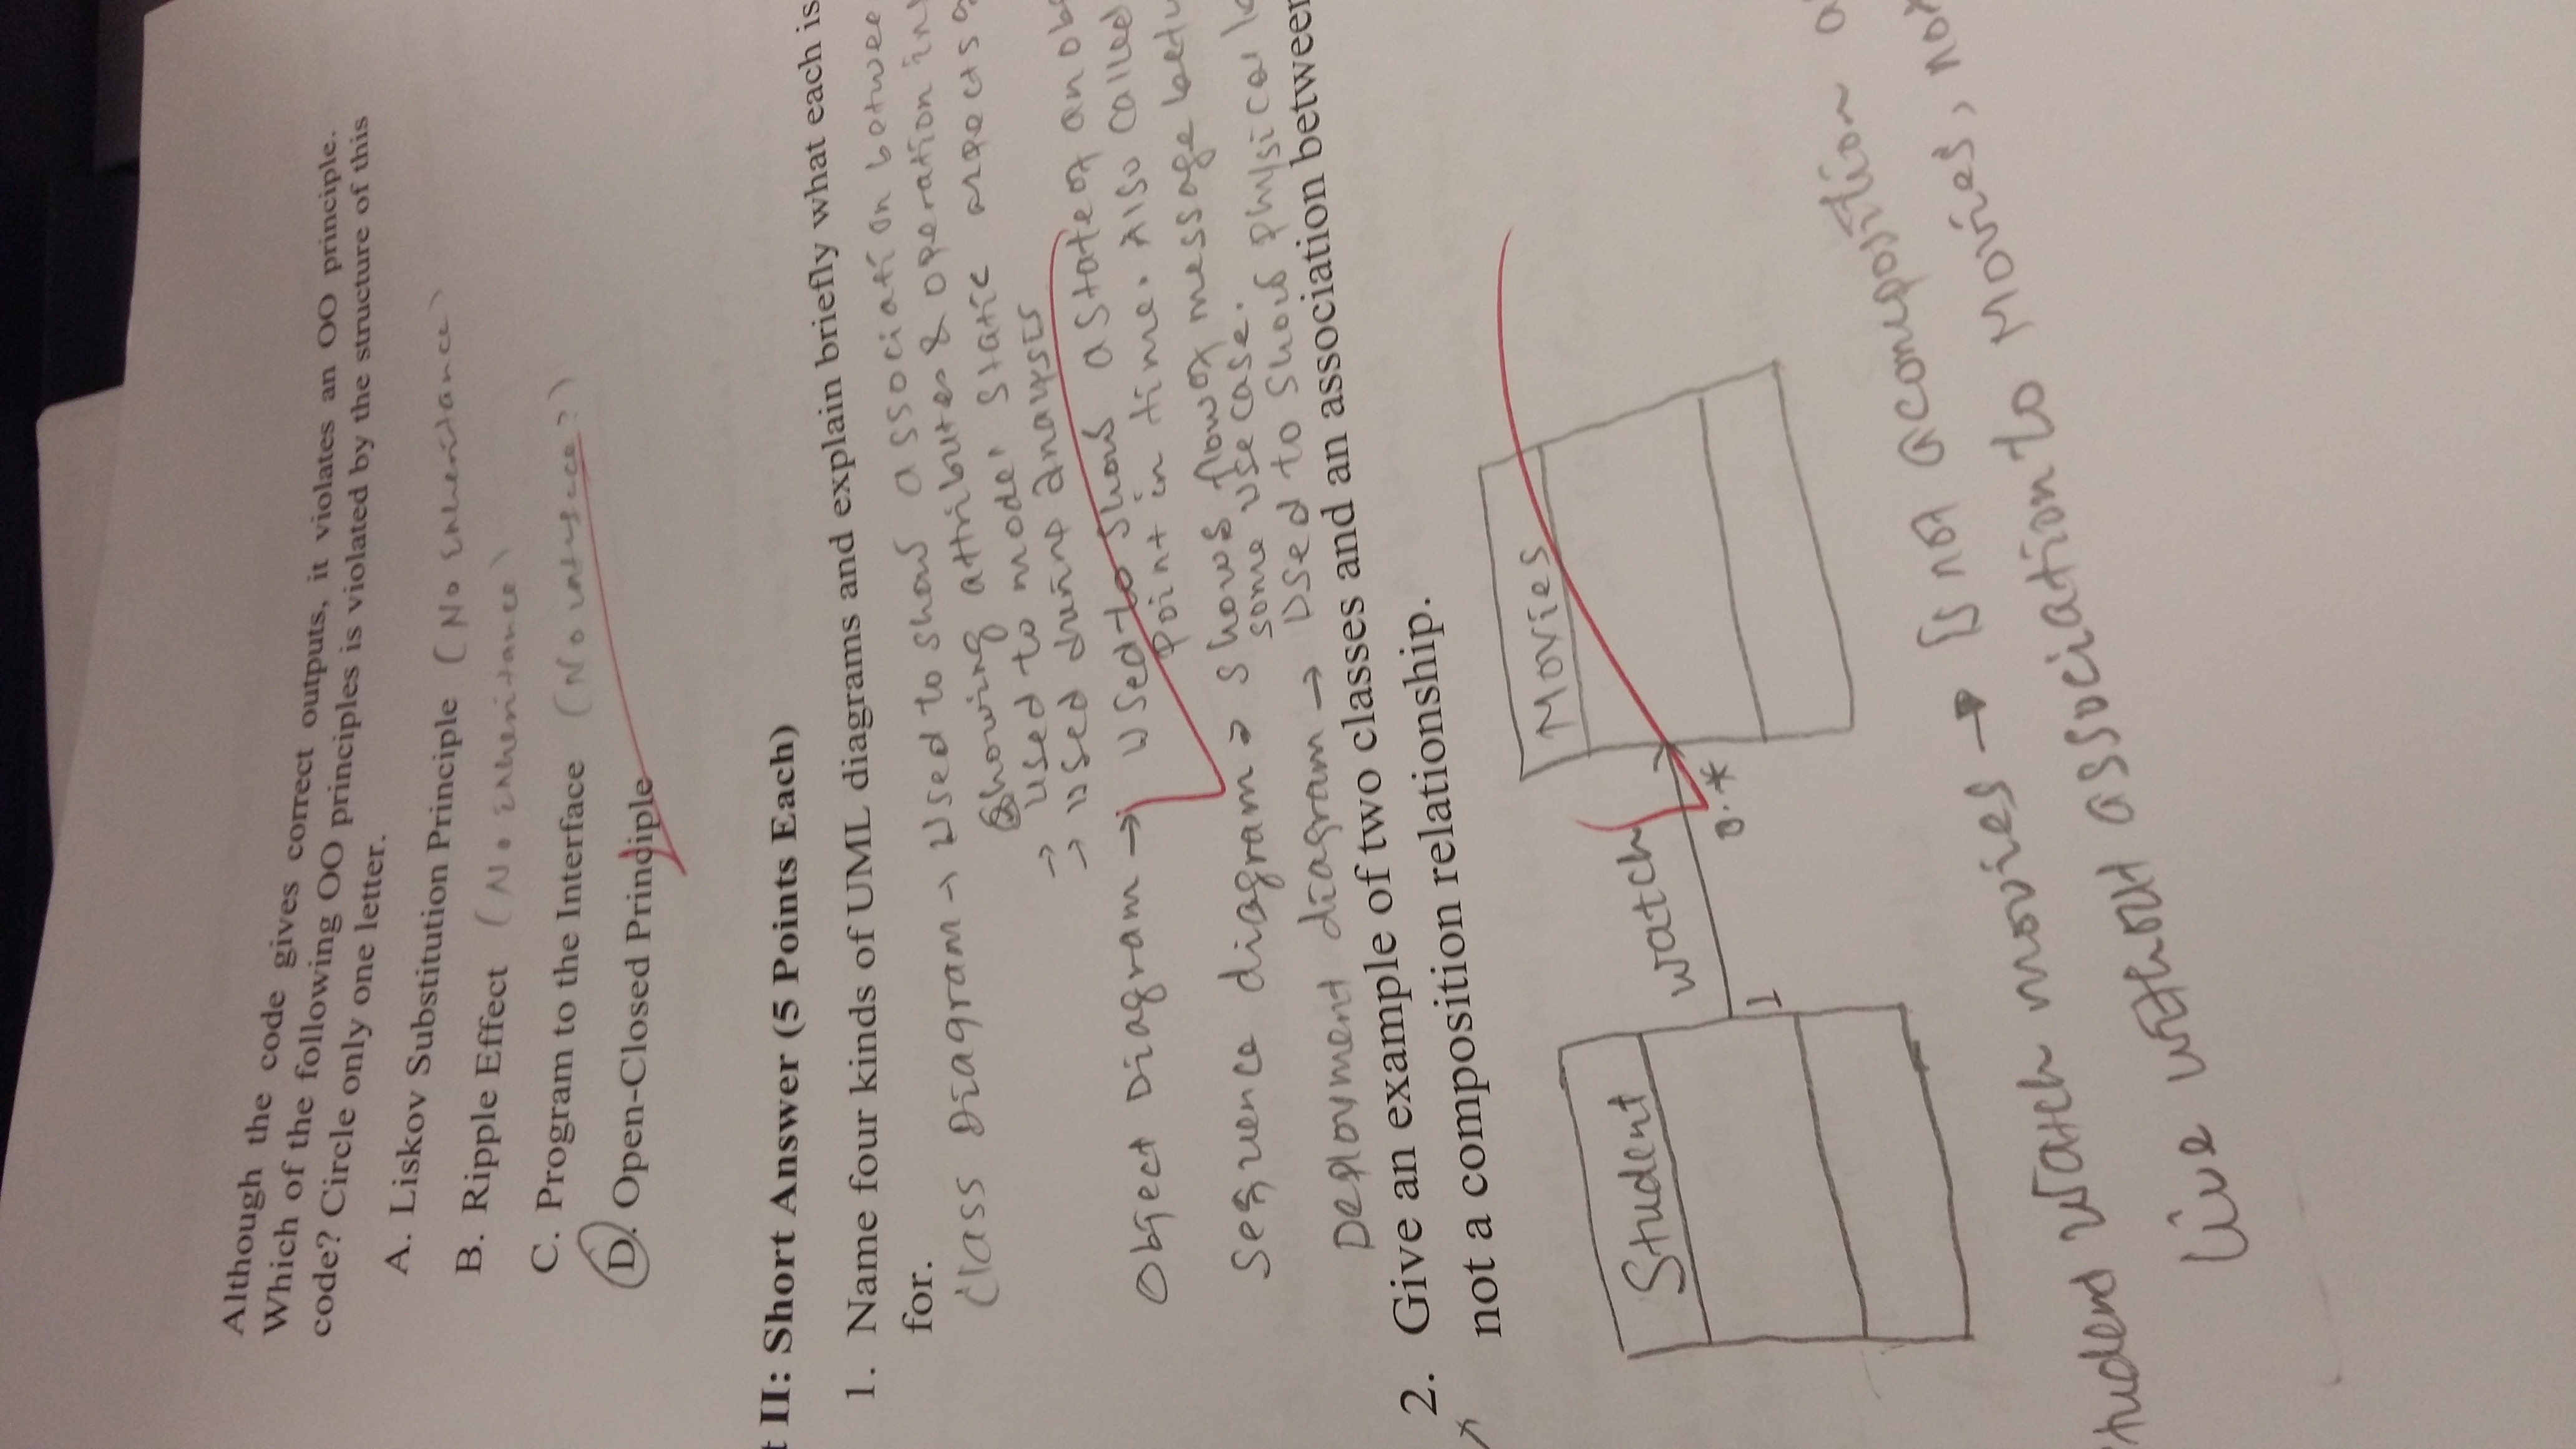 Although the code gives correct outputs, it violates an OO principle.
Which of the following OO principles is violated by the structure of this
code? Circle only one letter.
A. Liskov Substitution Principle (No inheritance)
B. Ripple Effect (No inheritance)
C. Program to the Interface (No interface?)
D. Open-Closed Principle
II: Short Answer (5 Points Each)
1. Name four kinds of UML diagrams and explain briefly what each is
for.
Class Diagram → Used to show association betwee
Showing attributes & operation in
→ Used to model static aspects
→ Used during analysis
Object Diagram → Used to show a state of an ob
point in time. Also called
Sequence diagram → shows flow of message betw
some use case.
Deployment diagram → Used to show physical
2. Give an example of two classes and an association between
not a composition relationship.
Student
watch
Movies
1
0..*
tudent watch movies → is not a composition a
live without association to Movies, not